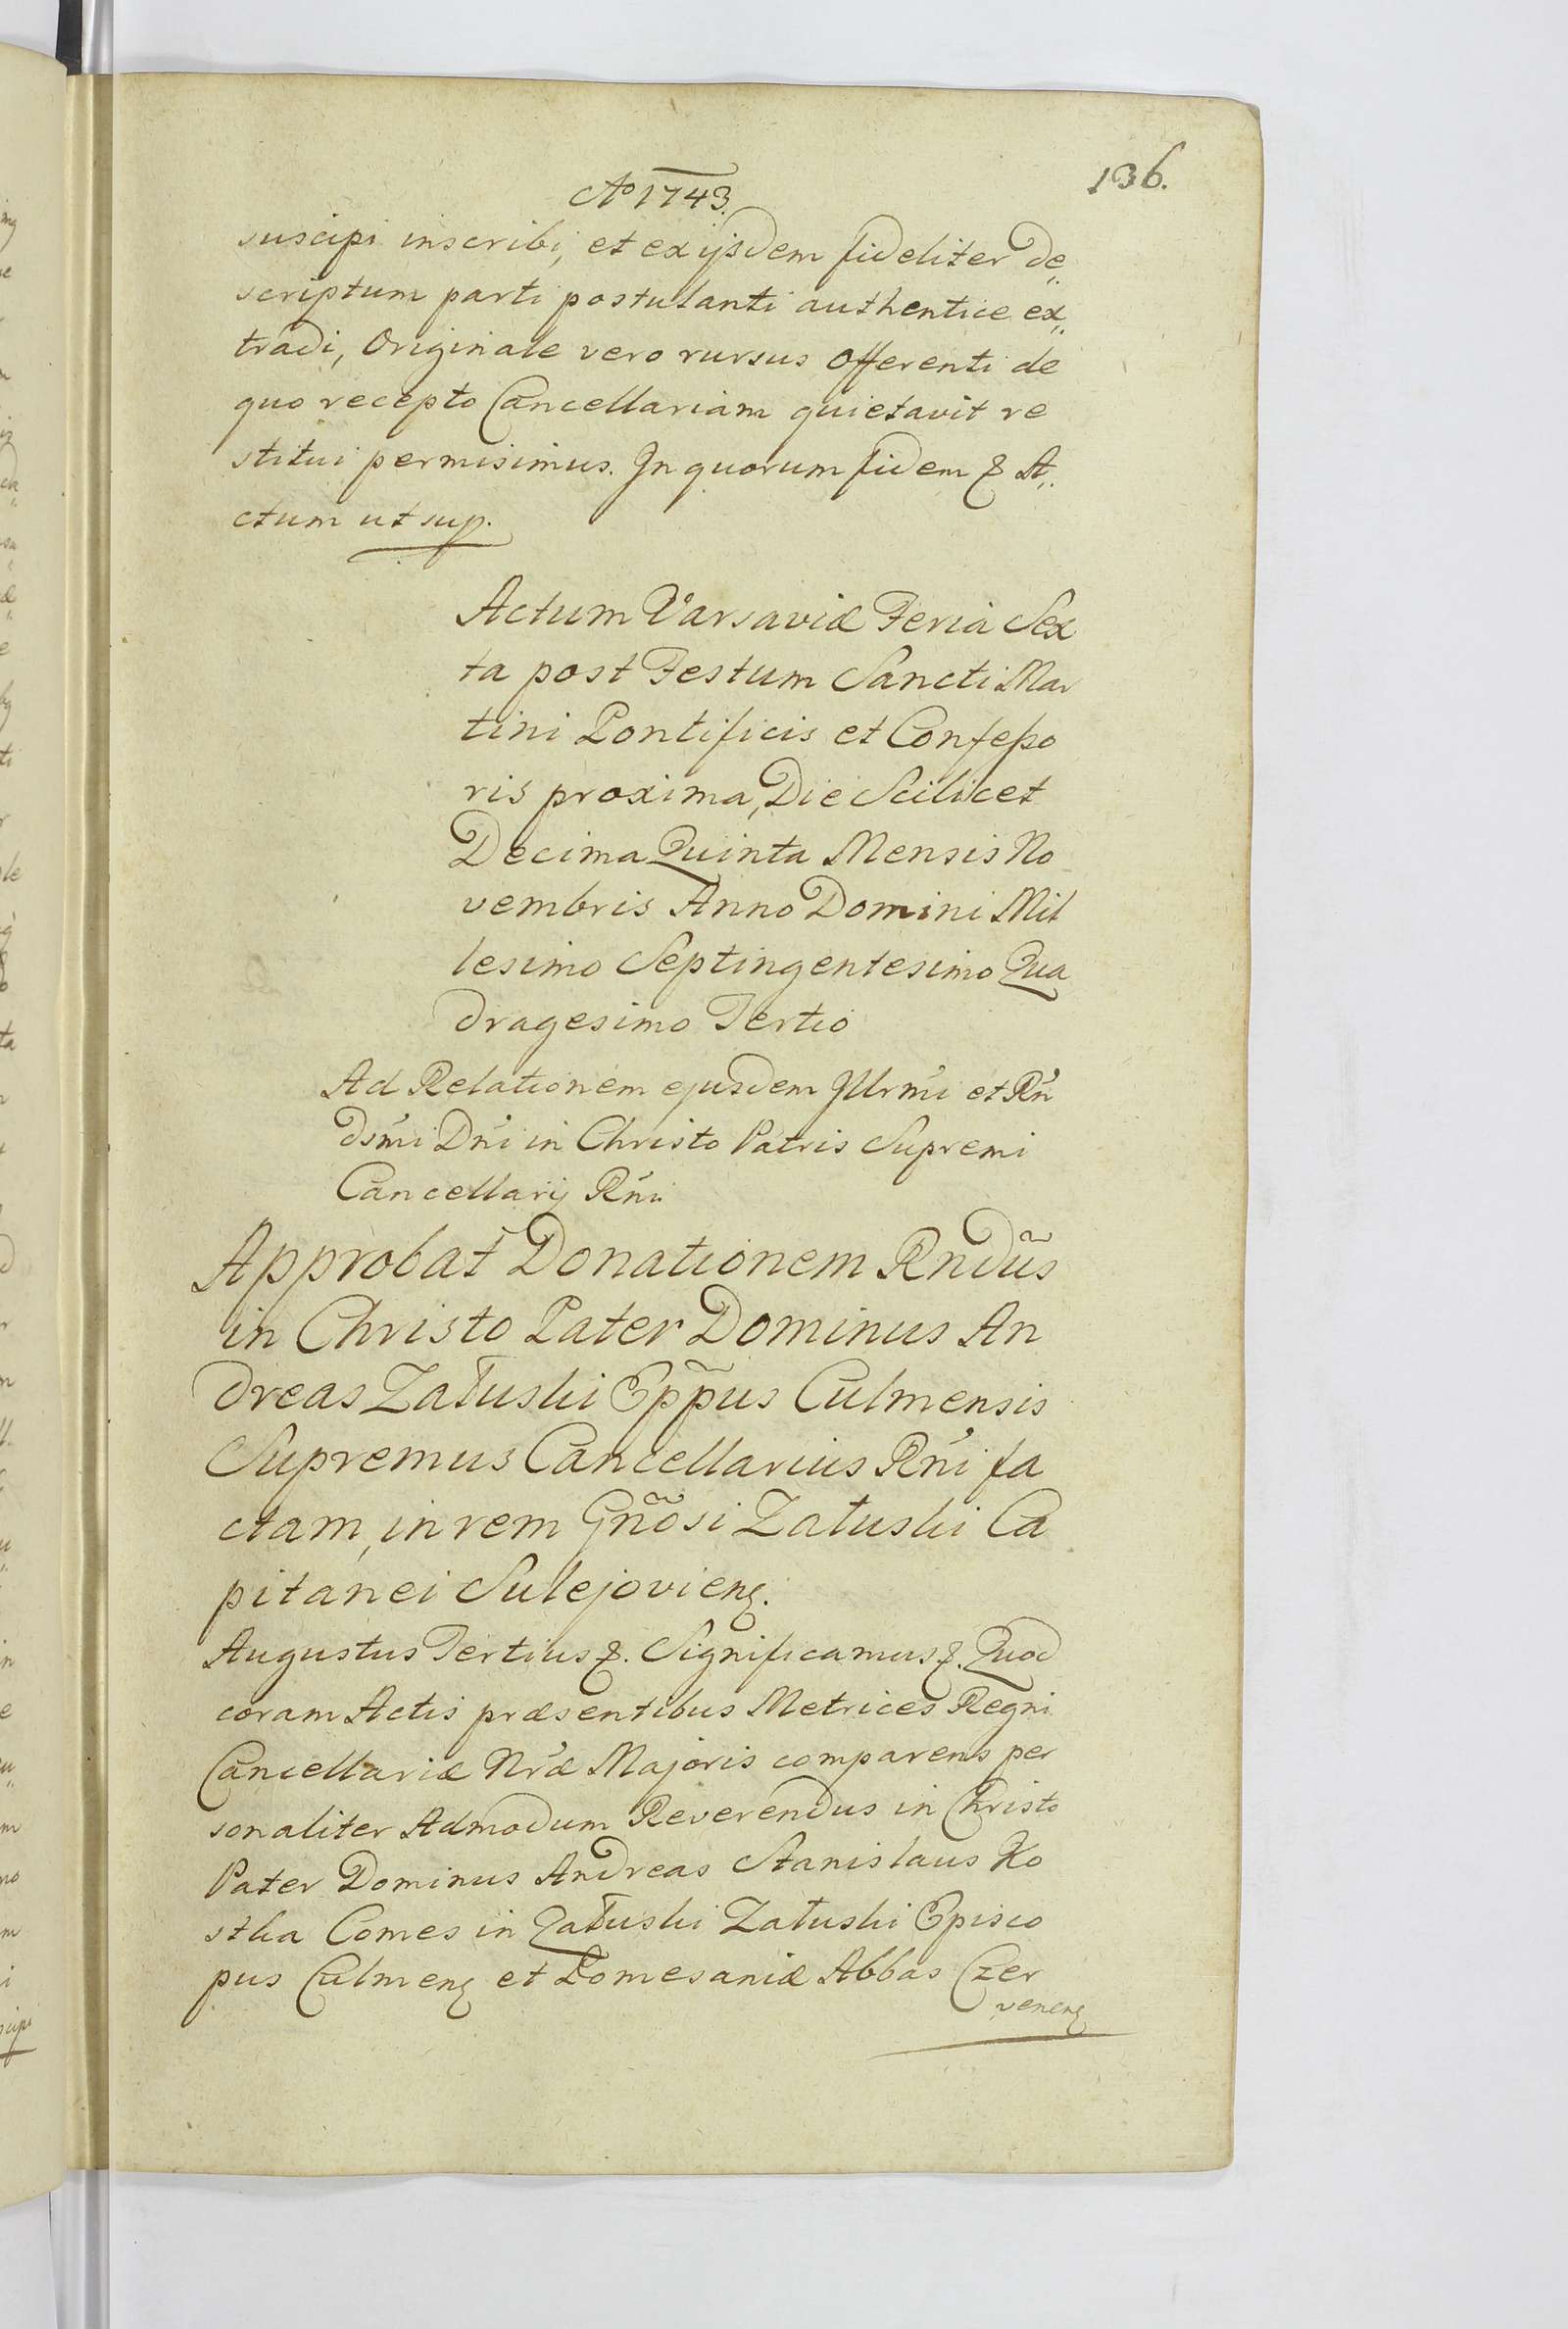 136.
Ao 1743.
suscipi inscribi, et ex ijsdem fideliter de„
scriptum parti postulanti authentice ex„
tradi, Originale vero rursus Offerenti de
quo recepto Cancellariam quietavit re
stitui permisimus. In quorum fidem & A„
ctum ut sup.
Actum Varsaviæ Feria Sex
ta post Festum Sancti Mar
tini Pontificis et Confeßo
ris proxima, Die Scilicet
Decima Quinta Mensis No
vembris Anno Domini Mil
lesimo Septingentesimo Qua
dragesimo Tertio
Ad Relationem ejusdem Illrm̃i et Rñ
dsm̃i Dñi in Christo Patris Supremi
Cancellarij Rñi
Approbat̃ Donationem Rndũs
in Christo Pater Dominus An
dreas Załuski Epp̃us Culmensis
Supremus Cancellarius Rñi fa
ctam, in rem Gñosi Załuski Ca
pitanei Sulejoviens.
Augustus Tertius &. Significamus &. Quod
coram Actis præsentibus Metrices Regni
Cancellariæ Nr̃æ Majoris comparens per
sonaliter Admodum Reverendus in Christo
Pater Dominus Andreas Stanislaus Ko
stka Comes in Załuski Załuski Episco
pus Culmens et Pomesaniæ Abbas Czer
venens